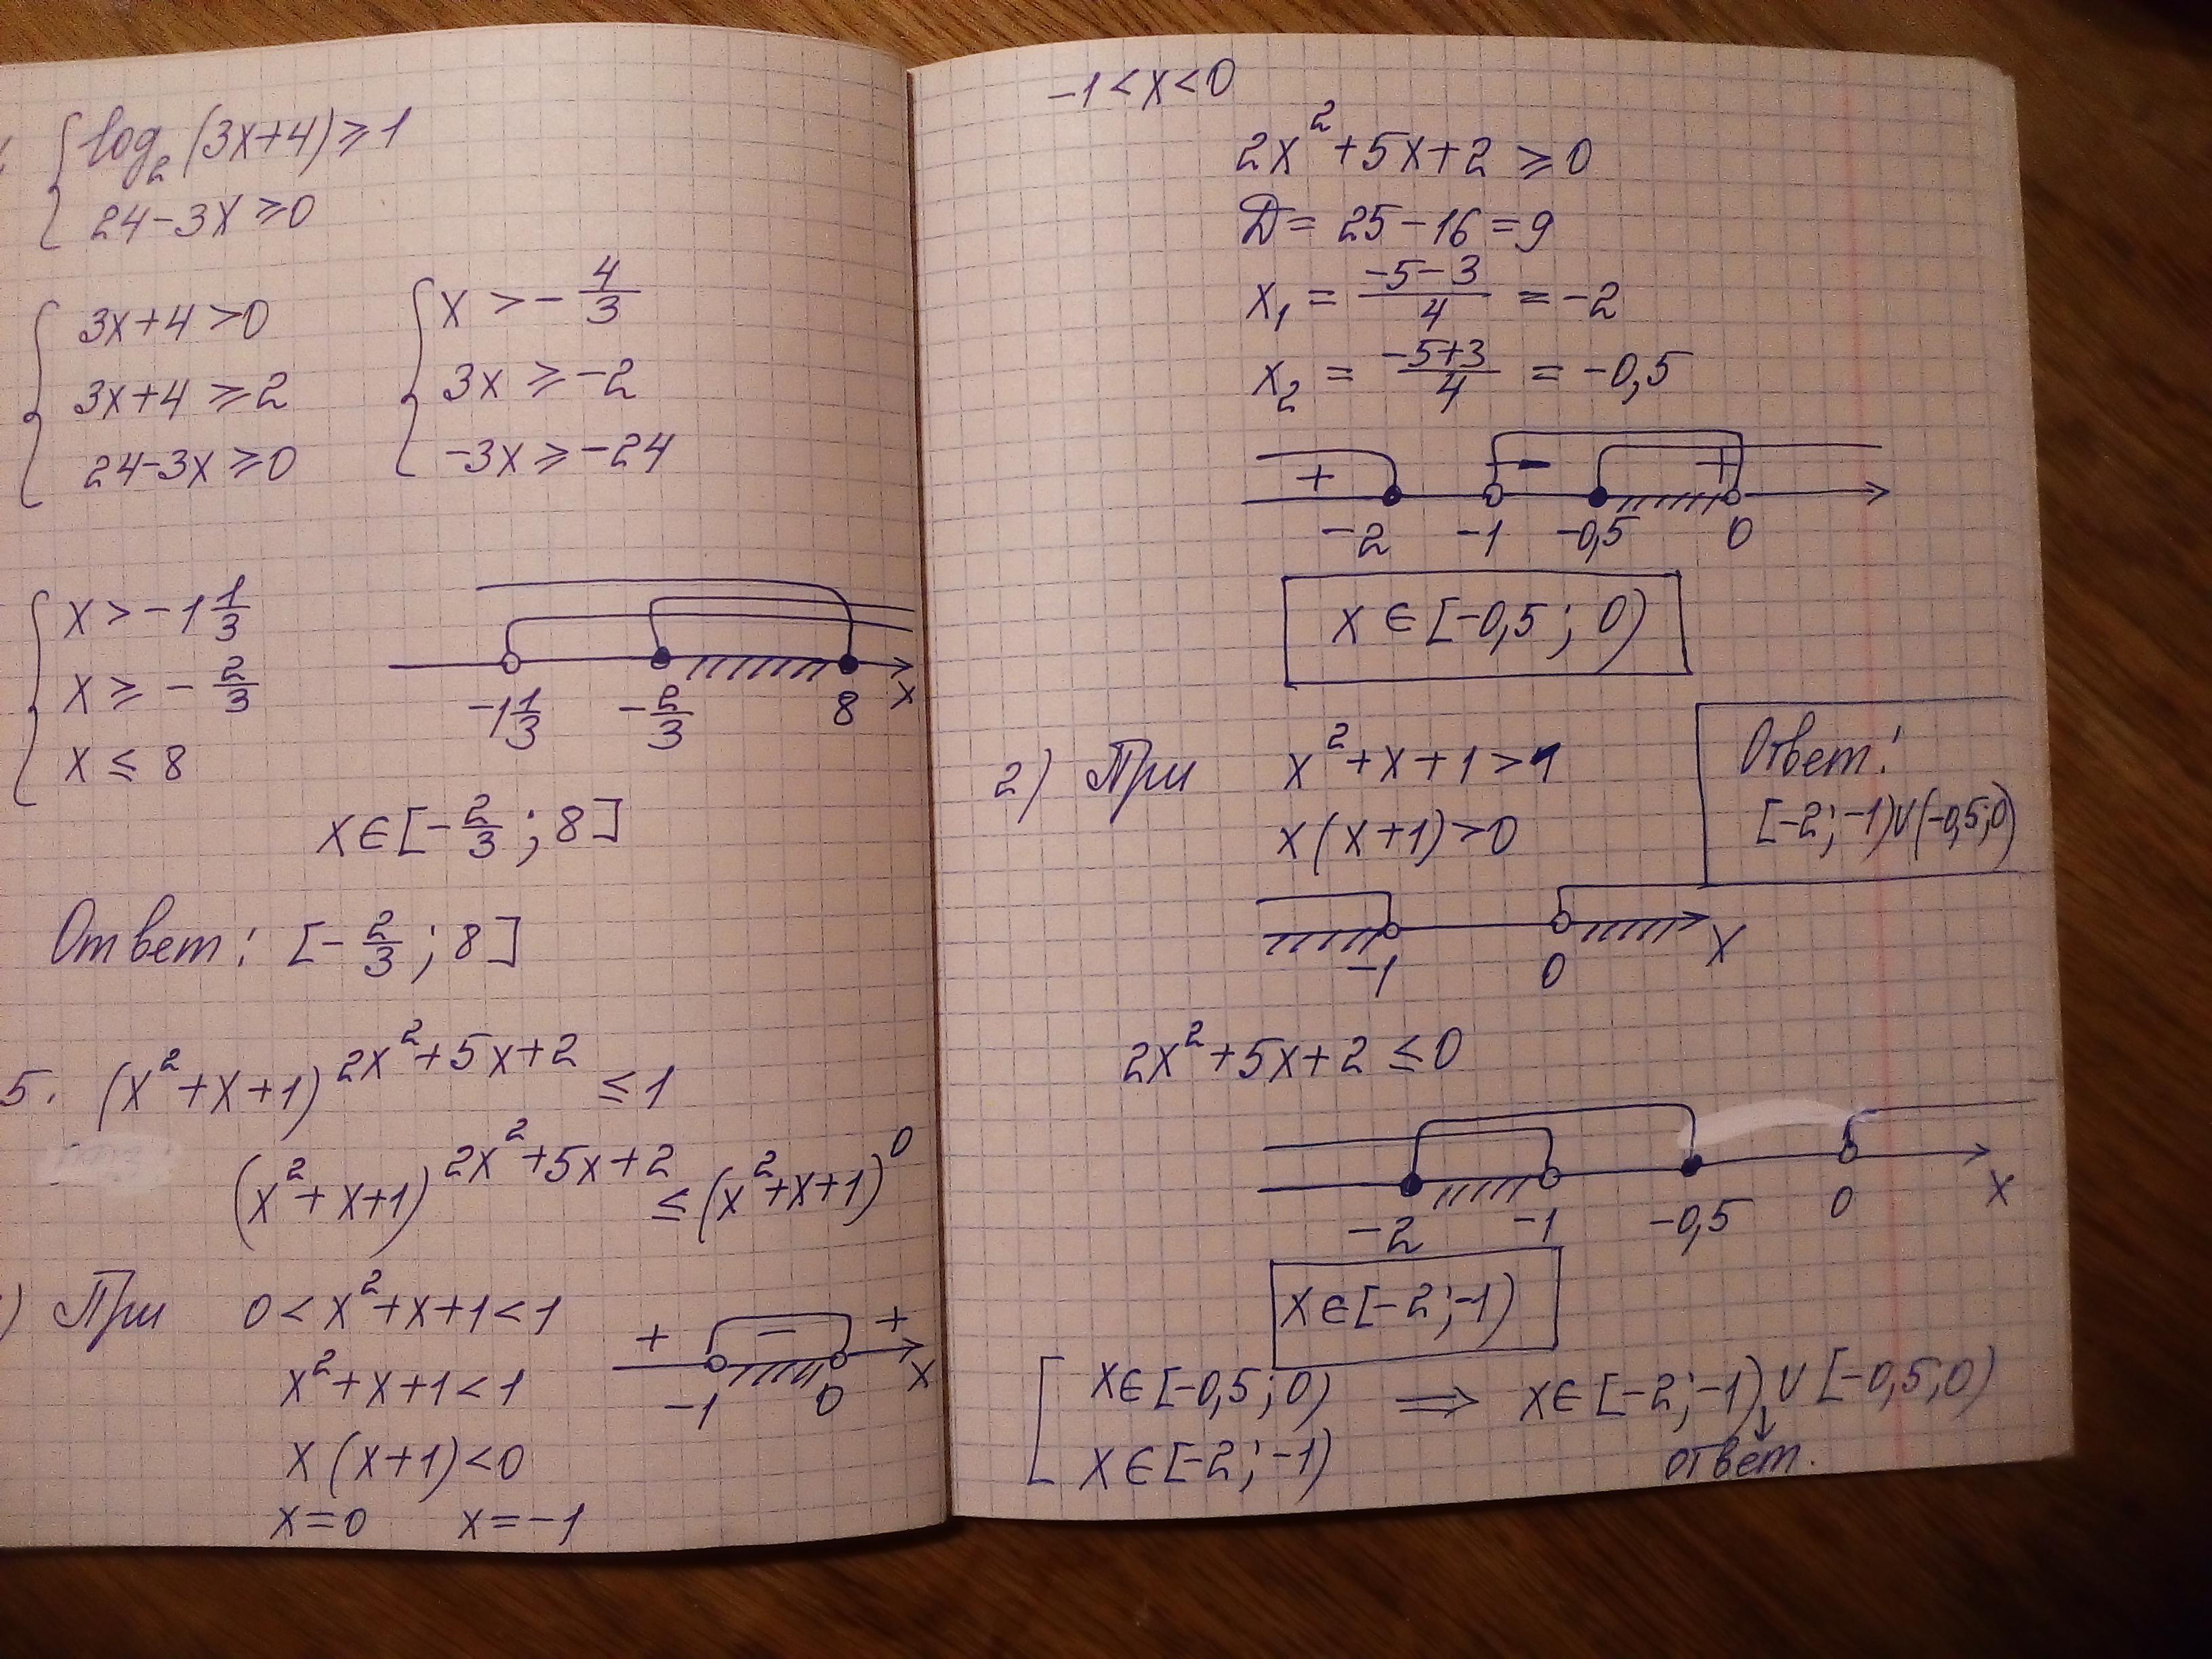 log₂(3x+4)≥1
24-3x≥0
3x+4>0
3x+4≥2
24-3x≥0
x>-4/3
3x≥-2
-3x≥-24
x>-1 1/3
x≥-2/3
x≤8
-1 1/3 -2/3 8 x
x∈[-2/3;8]
Ответ: [-2/3;8]
5. (x²+x+1)^(2x²+5x+2) ≤1
(x²+x+1)^(2x²+5x+2) ≤(x²+x+1)⁰
) При 0<x²+x+1<1
x²+x+1<1
x(x+1)<0
x=0 x=-1
+ - +
-1 0 x
-1<x<0
2x²+5x+2≥0
Д=25-16=9
x₁=(-5-3)/4=-2
x₂=(-5+3)/4=-0,5
+ - +
-2 -1 -0,5 0
x∈[-0,5;0)
2) При x²+x+1>1
x(x+1)>0
-1 0 x
Ответ:
[-2;-1)∪(-0,5;0)
2x²+5x+2≤0
-2 -1 -0,5 0 x
x∈[-2;-1)
x∈[-0,5;0)
x∈[-2;-1)
⇒ x∈[-2;-1)∪[-0,5;0)
ответ.